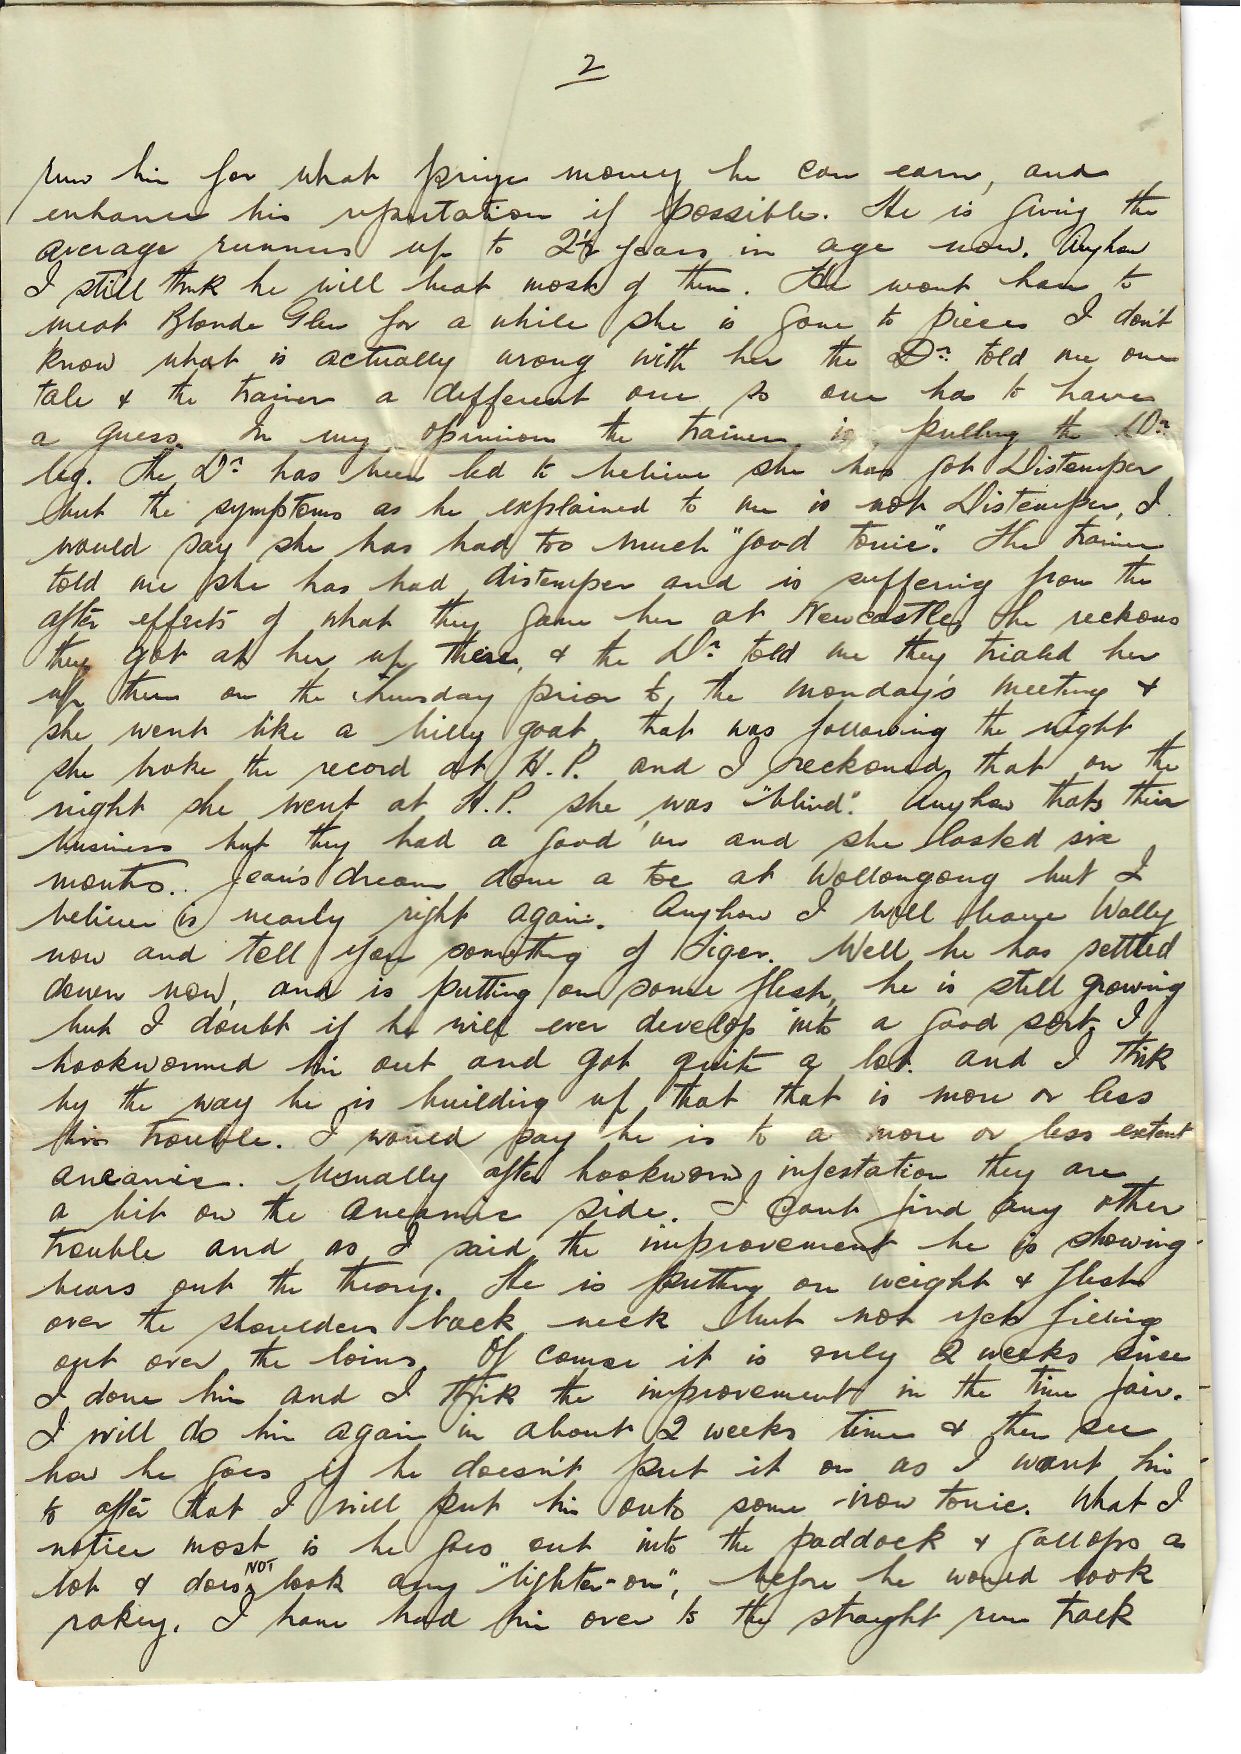 2
run him for what prize money he can earn, and
enhance his reputation if possible. He is giving the
average runners up to 2½ years in age now. Anyhow
I still think he will beat most of them. He wont have to
meet Blonde Glen for a while she is gone to pieces I don't
know what is actually wrong with her the Dr. told me one
tale & the trainer a different one so one has to have
a guess. In my opinion the trainer is pulling the Drs
leg. The Dr has been led to believe she has got Distemper
but the symptoms as he explained to me is not Distemper, I
would say she has had too much "good tonic". The trainer
told me she has had distemper and is suffering from the
after effects of what they gave her at Newcastle, He reckons
they got at her up there, & the Dr. told me they trialed her
up there on the Thursday prior to the Monday's meeting &
she went like a billy goat, that was following the night
she broke the record at H.P. and I reckoned that on the
night she went at H.P. she was "blind". Anyhow thats their
business but they had a good 'un and she lasted six
months. Jean's dream done a toe at Wollongong but I
believe is nearly right again. Anyhow I will leave Wally
now and tell you something of Tiger. Well he has settled
down now, and is putting on some flesh, he is still growing
but I doubt if he will ever develop into a good sort. I
hookwormed him out and got quite a lot. and I think
by the way he is building up that that is more or less
his trouble. I would say he is to a more or less extent
aneamic. Usually after hookworm infestation they are
a bit on the aneamic side. I cant find any other
trouble and as I said the improvement he is showing
bears out the theory. He is putting on weight & flesh
over the shoulders back neck but not yet filling
out over the loins. Of course it is only 2 weeks since
I done him and I think the improvement in the time fair.
I will do him again in about 2 weeks time & then see
how he goes if he doesn't put it on as I want him
to after that I will put him onto some iron tonic. What I
notice most is he goes out into the paddock & gallops a
lot & does NOT look any "lighter-on", before he would look
rakey. I have had him over to the straight run track